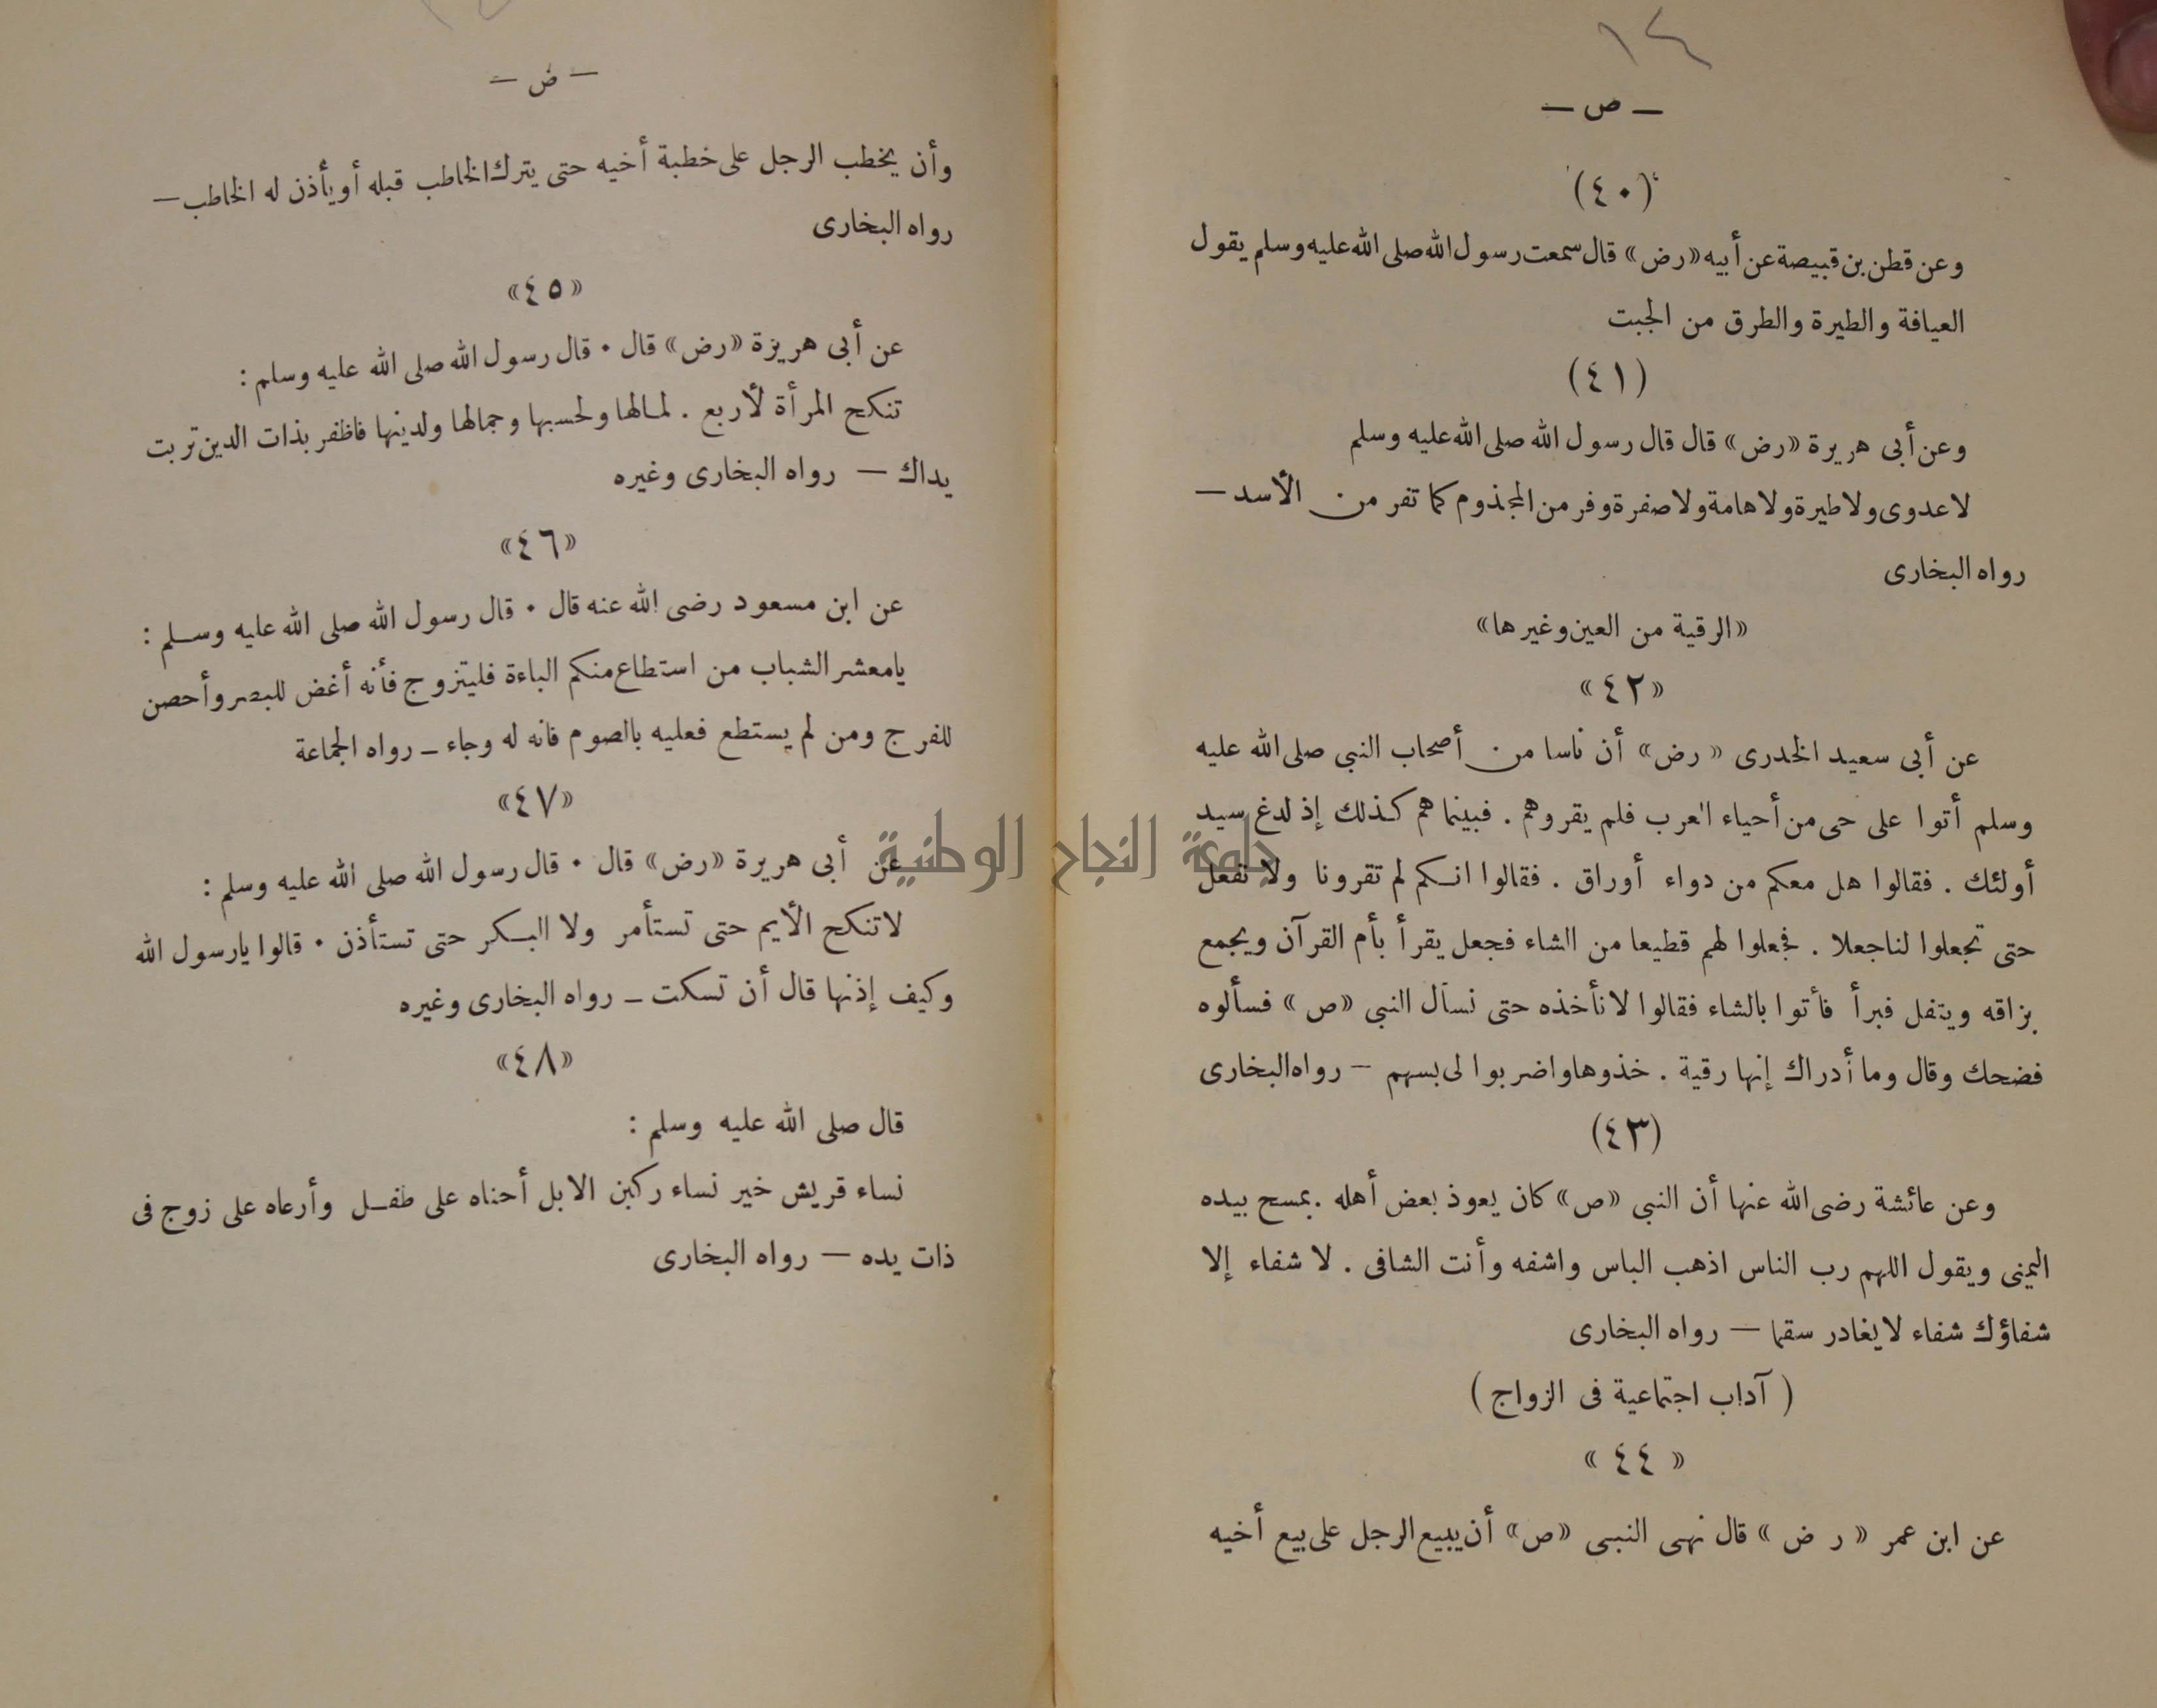 ١٤
— ص —
(٤٠)
وعن قطن بن قبيصة عن أبيه «رض» قال سمعت رسول الله صلى الله عليه وسلم يقول
العيافة والطيرة والطرق من الجبت
(٤١)
وعن أبى هريرة «رض» قال قال رسول الله صلى الله عليه وسلم
لاعدوى ولا طيرة ولا هامة ولا صفرة وفر من المجذوم كما تفر من الأسد —
رواه البخارى
«الرقية من العين وغيرها»
«٤٢»
عن أبى سعيد الخدرى «رض» أن ناسا من أصحاب النبى صلى الله عليه
وسلم أتوا على حى من أحياء العرب فلم يقروهم . فبينما هم كذلك إذ لدغ سيد
أولئك . فقالوا هل معكم من دواء أوراق . فقالوا انكم لم تقرونا ولا نفعل
حتى تجعلوا لنا جعلا . فجعلوا لهم قطيعا من الشاء فجعل يقرأ بأم القرآن ويجمع
بزاقه ويتفل فبرأ فأتوا بالشاء فقالوا لا نأخذه حتى نسأل النبى «ص» فسألوه
فضحك وقال وما أدراك إنها رقية . خذوها واضربوا لى بسهم — رواه البخارى
(٤٣)
وعن عائشة رضى الله عنها أن النبى «ص» كان يعوذ بعض أهله . يمسح بيده
اليمنى ويقول اللهم رب الناس اذهب الباس واشفه وأنت الشافى . لا شفاء إلا
شفاؤك شفاء لا يغادر سقما — رواه البخارى
( آداب اجتماعية فى الزواج )
«٤٤»
عن ابن عمر «رض» قال نهى النبى «ص» أن يبيع الرجل على بيع أخيه
— ض —
وأن يخطب الرجل على خطبة أخيه حتى يترك الخاطب قبله أو يأذن له الخاطب —
رواه البخارى
«٤٥»
عن أبى هريزة «رض» قال . قال رسول الله صلى الله عليه وسلم :
تنكح المرأة لأربع . لمالها ولحسبها وجمالها ولدينها فاظفر بذات الدين تربت
يداك — رواه البخارى وغيره
«٤٦»
عن ابن مسعود رضى الله عنه قال . قال رسول الله صلى الله عليه وسلم :
يا معشر الشباب من استطاع منكم الباءة فليتزوج فأنه أغض للبصر وأحصن
للفرج ومن لم يستطع فعليه بالصوم فانه له وجاء — رواه الجماعة
«٤٧»
عن أبى هريرة «رض» قال . قال رسول الله صلى الله عليه وسلم :
لا تنكح الأيم حتى تستأمر ولا البكر حتى تستأذن . قالوا يا رسول الله
وكيف إذنها قال أن تسكت — رواه البخارى وغيره
«٤٨»
قال صلى الله عليه وسلم :
نساء قريش خير نساء ركبن الابل أحناه على طفل وأرعاه على زوج فى
ذات يده — رواه البخارى
جامعة النجاح الوطنية